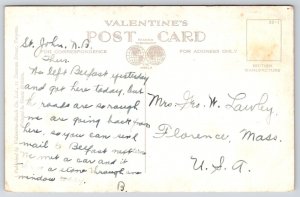 VALENTINE'S
POST CARD
FOR CORRESPONDENCE
FOR ADDRESS ONLY
BRITISH
MANUFACTURE
St. John, N.B.
Thurs.
We left Belfast yesterday
and got here today, but
the roads are so rough
we are going back from
here, so you can send
mail to Belfast
We met a car and it
a stone through our
window
B.
Mrs. Geo. W. Lawley
Florence, Mass.
U.S.A.